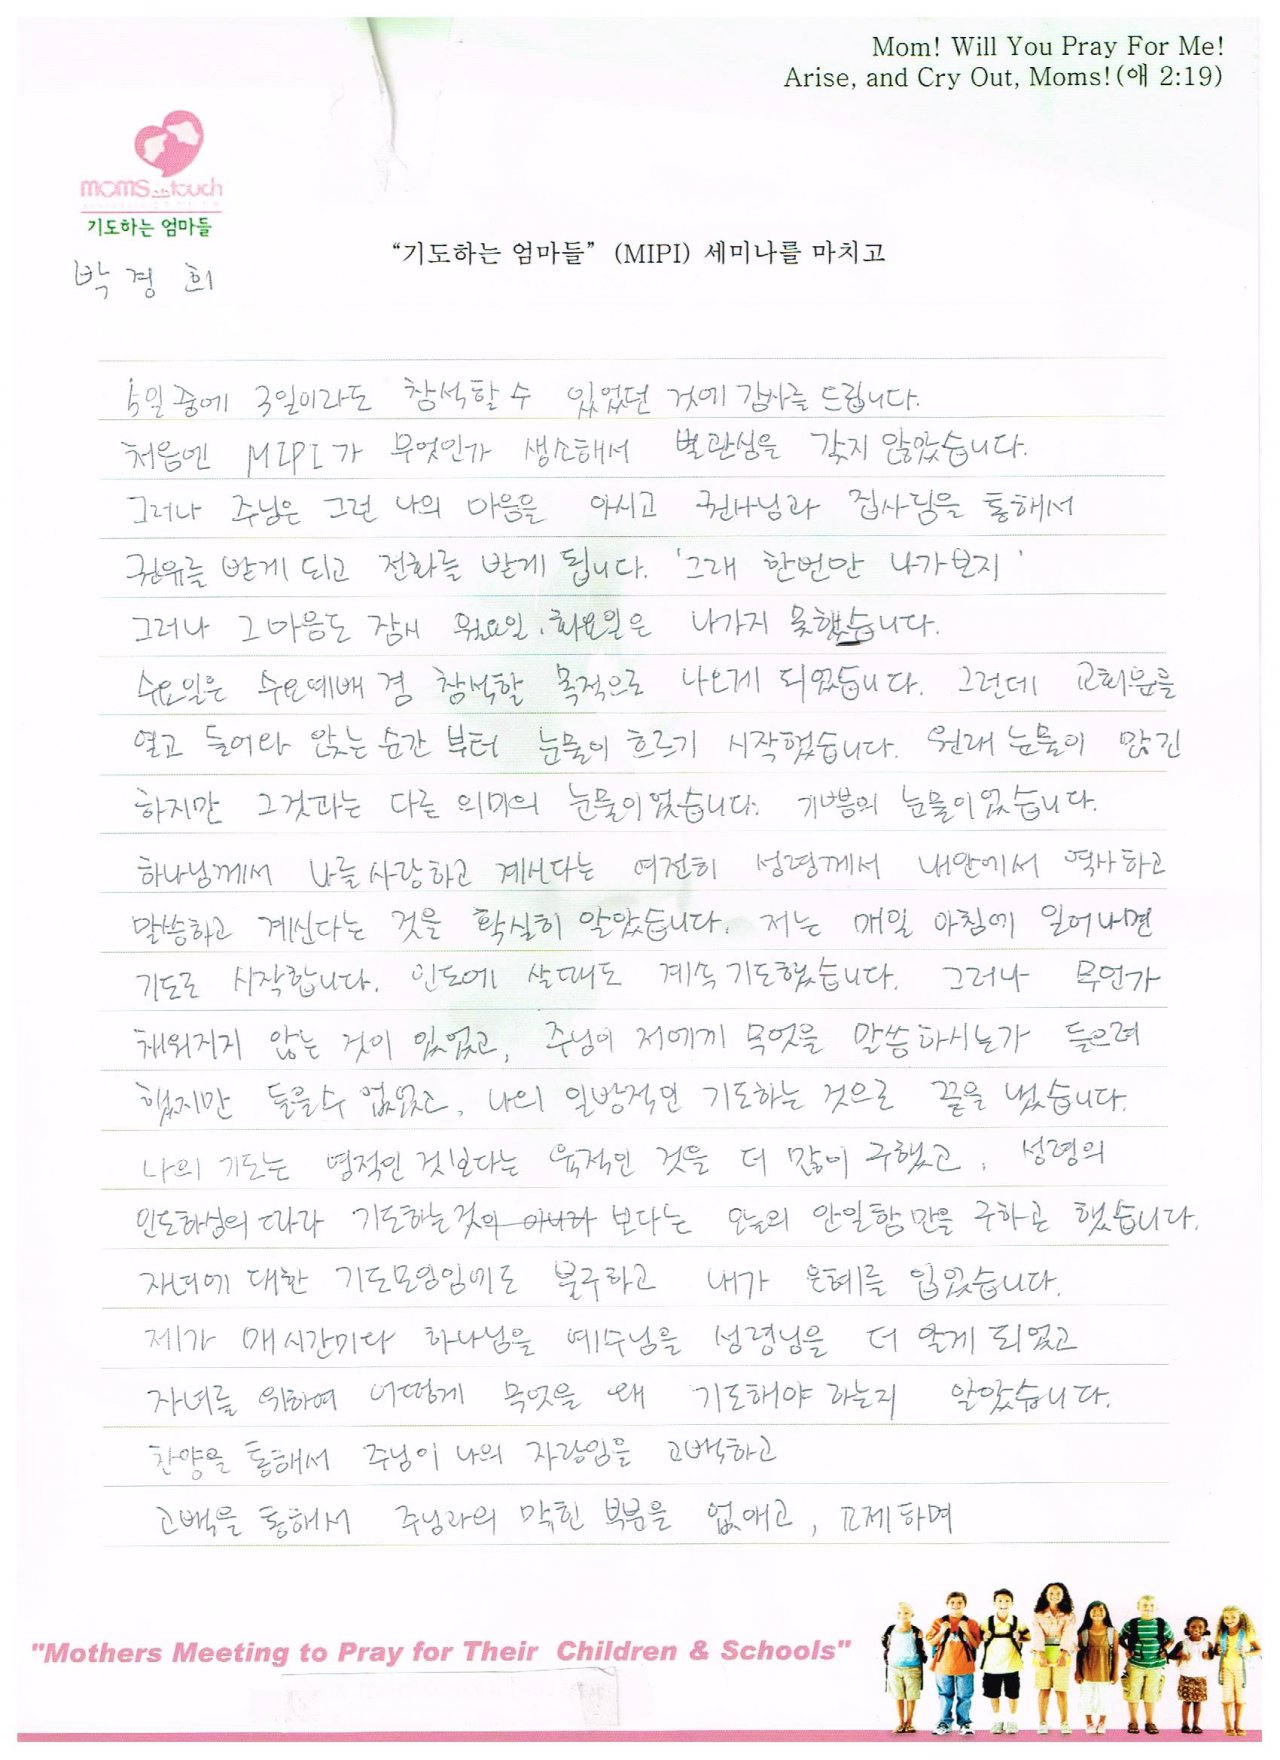 Mom! Will You Pray For Me!
Arise, and Cry Out, Moms!(애 2:19)
moms in touch
기도하는 엄마들
박경희
“기도하는 엄마들” (MIPI) 세미나를 마치고
5일중에 3일이라도 참석할 수 있었던 것에 감사를 드립니다.
처음엔 MIPI가 무엇인가 생소해서 별관심을 갖지 않았습니다.
그러나 주님은 그런 나의 마음을 아시고 권사님과 집사님을 통해서
권유를 받게 되고 전화를 받게 됩니다. '그래 한번만 나가보지'
그러나 그 마음도 잠시 월요일.화요일은 나가지 못했습니다.
수요일은 수요예배 겸 참석할 목적으로 나오게 되었습니다. 그런데 교회문을
열고 들어와 앉는 순간 부터 눈물이 흐르기 시작했습니다. 원래 눈물이 많긴
하지만 그것과는 다른 의미의 눈물이었습니다. 기쁨의 눈물이었습니다.
하나님께서 나를 사랑하고 계신다는 여전히 성령께서 내안에서 역사하고
말씀하고 계신다는 것을 확실히 알았습니다. 저는 매일 아침에 일어나면
기도로 시작합니다. 인도에 살때도 계속 기도했습니다. 그러나 무언가
채워지지 않는 것이 있었고, 주님이 저에게 무엇을 말씀하시는가 들으려
했지만 들을수 없었고, 나의 일방적인 기도하는 것으로 끝을 냈습니다.
나의 기도는 영적인 것보다는 육적인 것을 더 많이 구했고, 성령의
인도하심의 따라 기도하는것이 아니라 보다는 오늘의 안일함만을 구하곤 했습니다.
자녀에 대한 기도모임임에도 불구하고 내가 은혜를 입었습니다.
제가 매시간마다 하나님을 예수님을 성령님을 더 알게 되었고
자녀를 위하여 어떻게 무엇을 왜 기도해야 하는지 알았습니다.
찬양을 통해서 주님이 나의 자랑임을 고백하고
고백을 통해서 주님과의 막힌 부분을 없애고, 교제하며
"Mothers Meeting to Pray for Their Children & Schools"